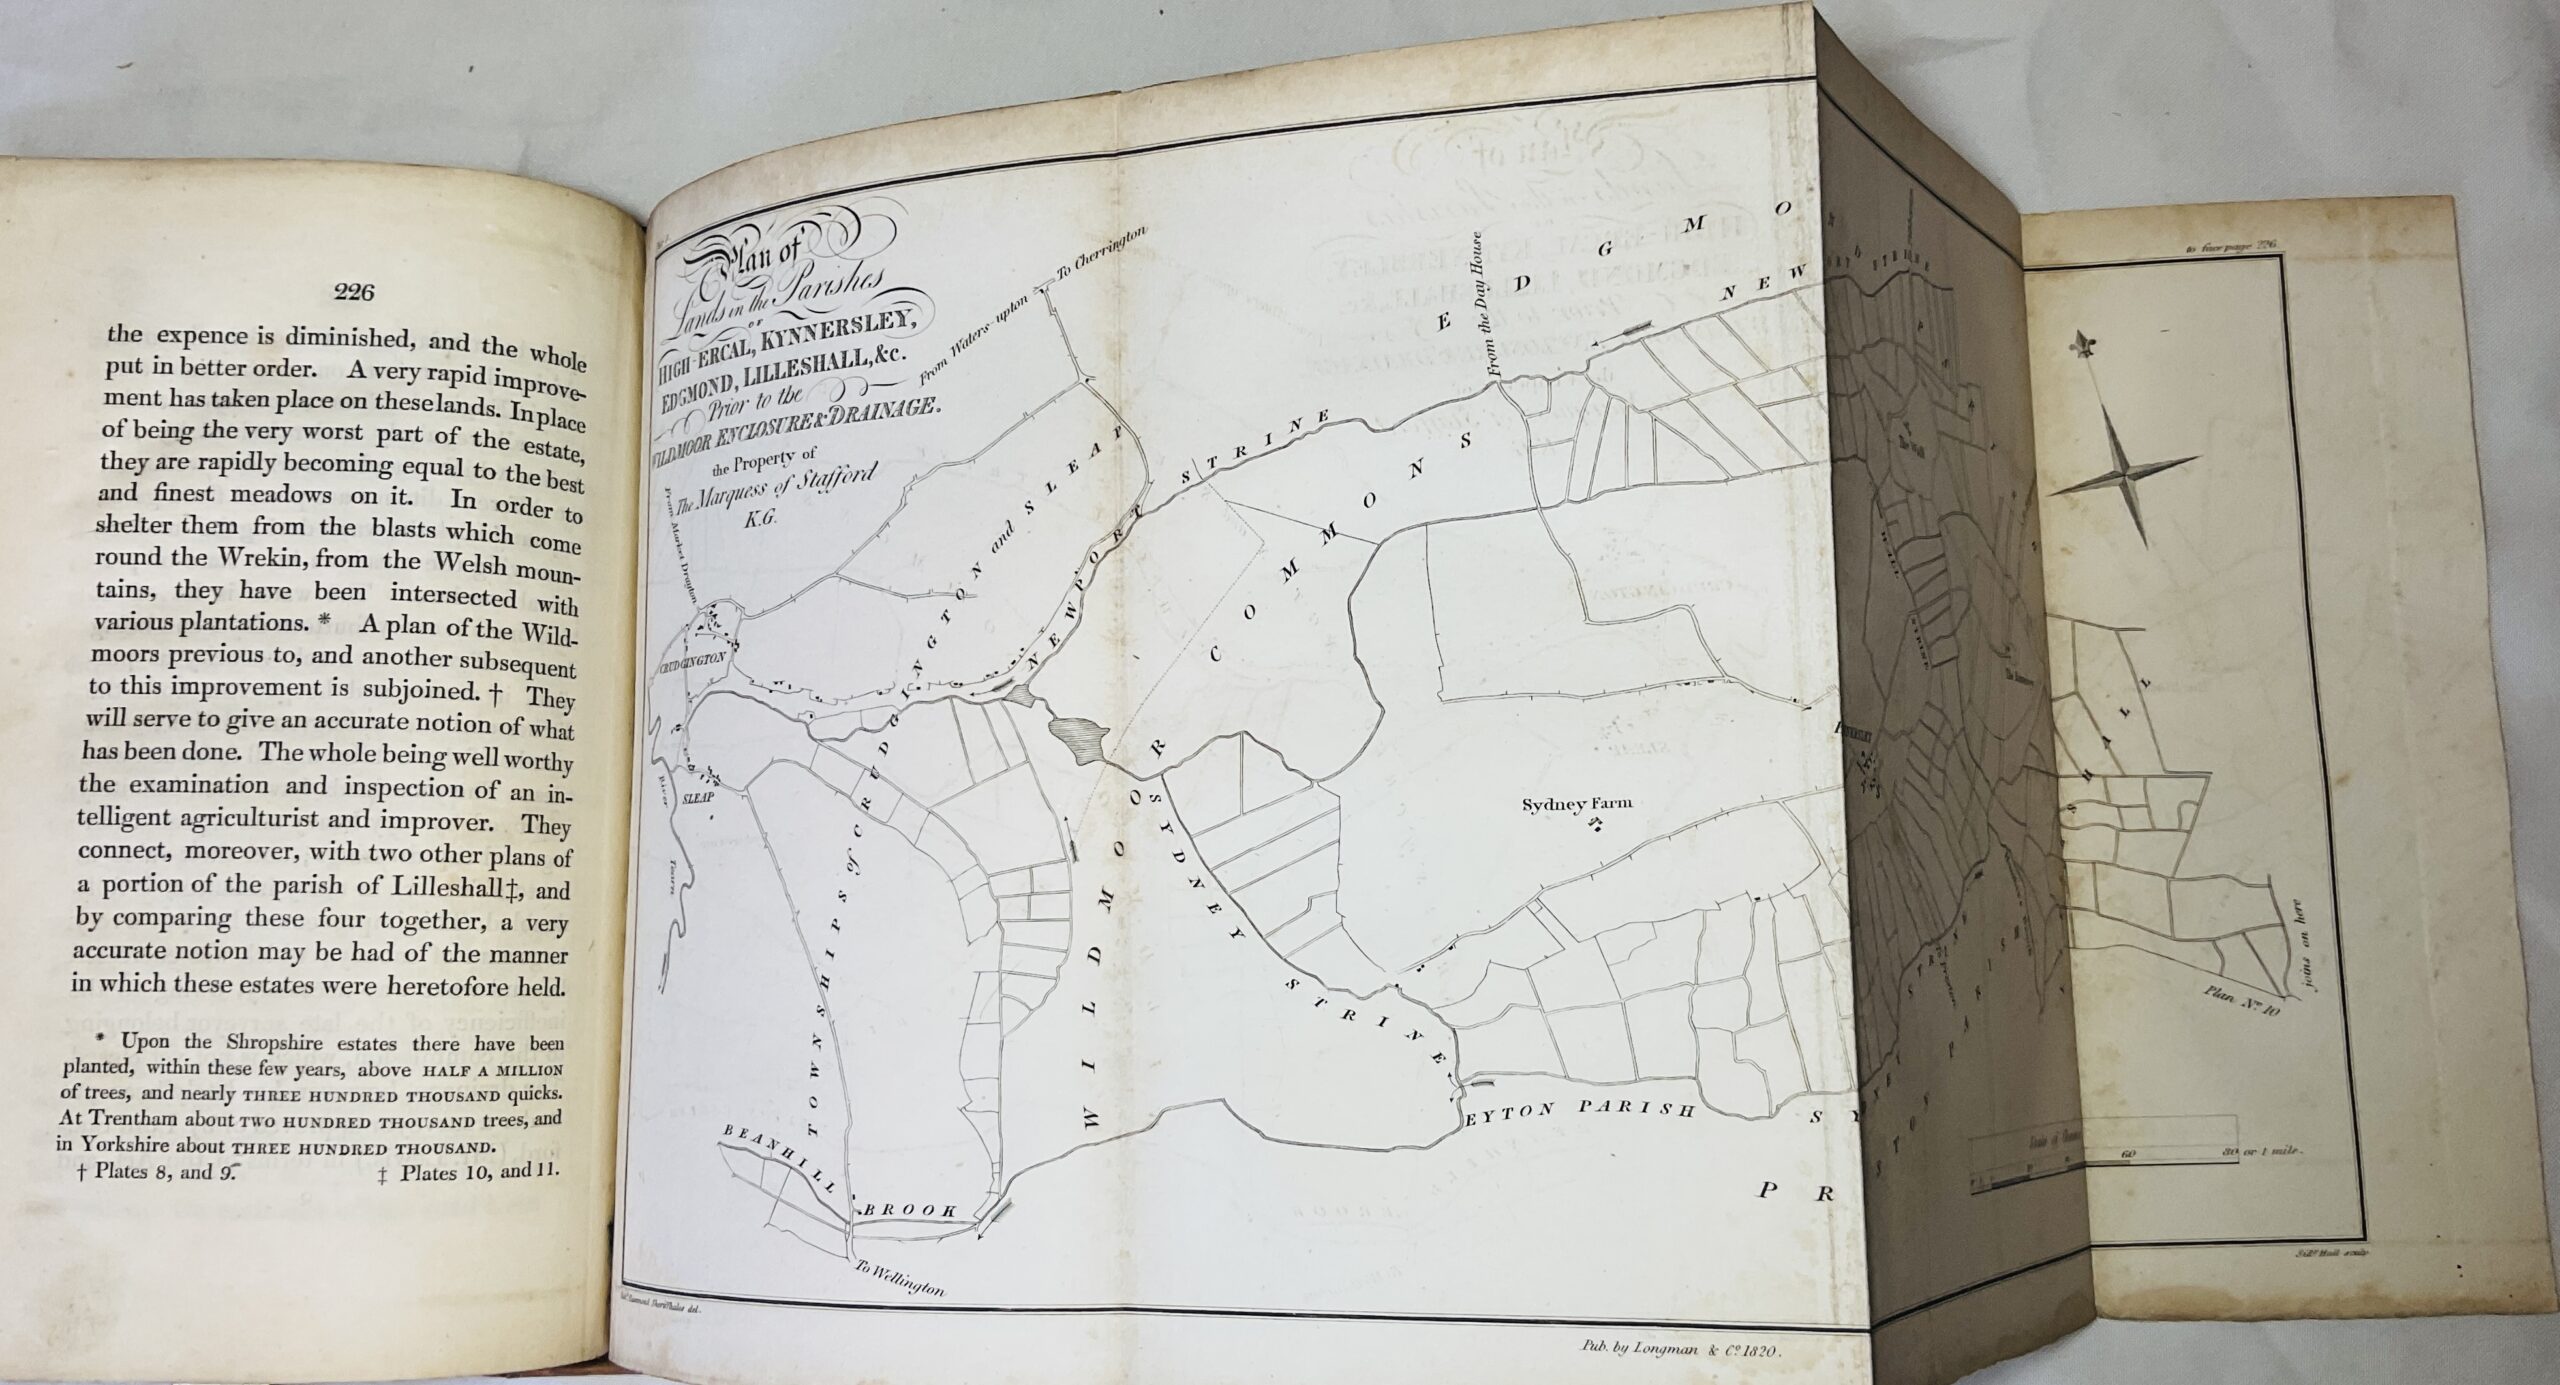 226
the expence is diminished, and the whole
put in better order. A very rapid improve-
ment has taken place on these lands. In place
of being the very worst part of the estate,
they are rapidly becoming equal to the best
and finest meadows on it. In order to
shelter them from the blasts which come
round the Wrekin, from the Welsh moun-
tains, they have been intersected with
various plantations. * A plan of the Wild-
moors previous to, and another subsequent
to this improvement is subjoined. † They
will serve to give an accurate notion of what
has been done. The whole being well worthy
the examination and inspection of an in-
telligent agriculturist and improver. They
connect, moreover, with two other plans of
a portion of the parish of Lilleshall‡, and
by comparing these four together, a very
accurate notion may be had of the manner
in which these estates were heretofore held.
* Upon the Shropshire estates there have been
planted, within these few years, above HALF A MILLION
of trees, and nearly THREE HUNDRED THOUSAND quicks.
At Trentham about TWO HUNDRED THOUSAND trees, and
in Yorkshire about THREE HUNDRED THOUSAND.
† Plates 8, and 9. ‡ Plates 10, and 11.
Plan of
Lands in the Parishes
OF
HIGH-ERCAL, KYNNERSLEY,
EDGMOND, LILLESHALL, &c.
Prior to the
WILDMOOR ENCLOSURE & DRAINAGE.
the Property of
The Marquess of Stafford
K.G.
From Waters-upton
To Cherrington
From Market Drayton
From the Day House
EDGMO
NEW
NEWPORT STRINE
COMMONS
WILDMOOR
TOWNSHIPS of CRUDGINGTON and SLEAP
CRUDGINGTON
SLEAP
River
Tearn
SYDNEY STRINE
Sydney Farm
EYTON PARISH
SY
PR
BEANHILL
BROOK
To Wellington
Pub. by Longman & Co. 1820.
to face page 226
SHALL
joins on here
Plan No. 10
60
80 or 1 mile.
Sidy. Hall sculp.